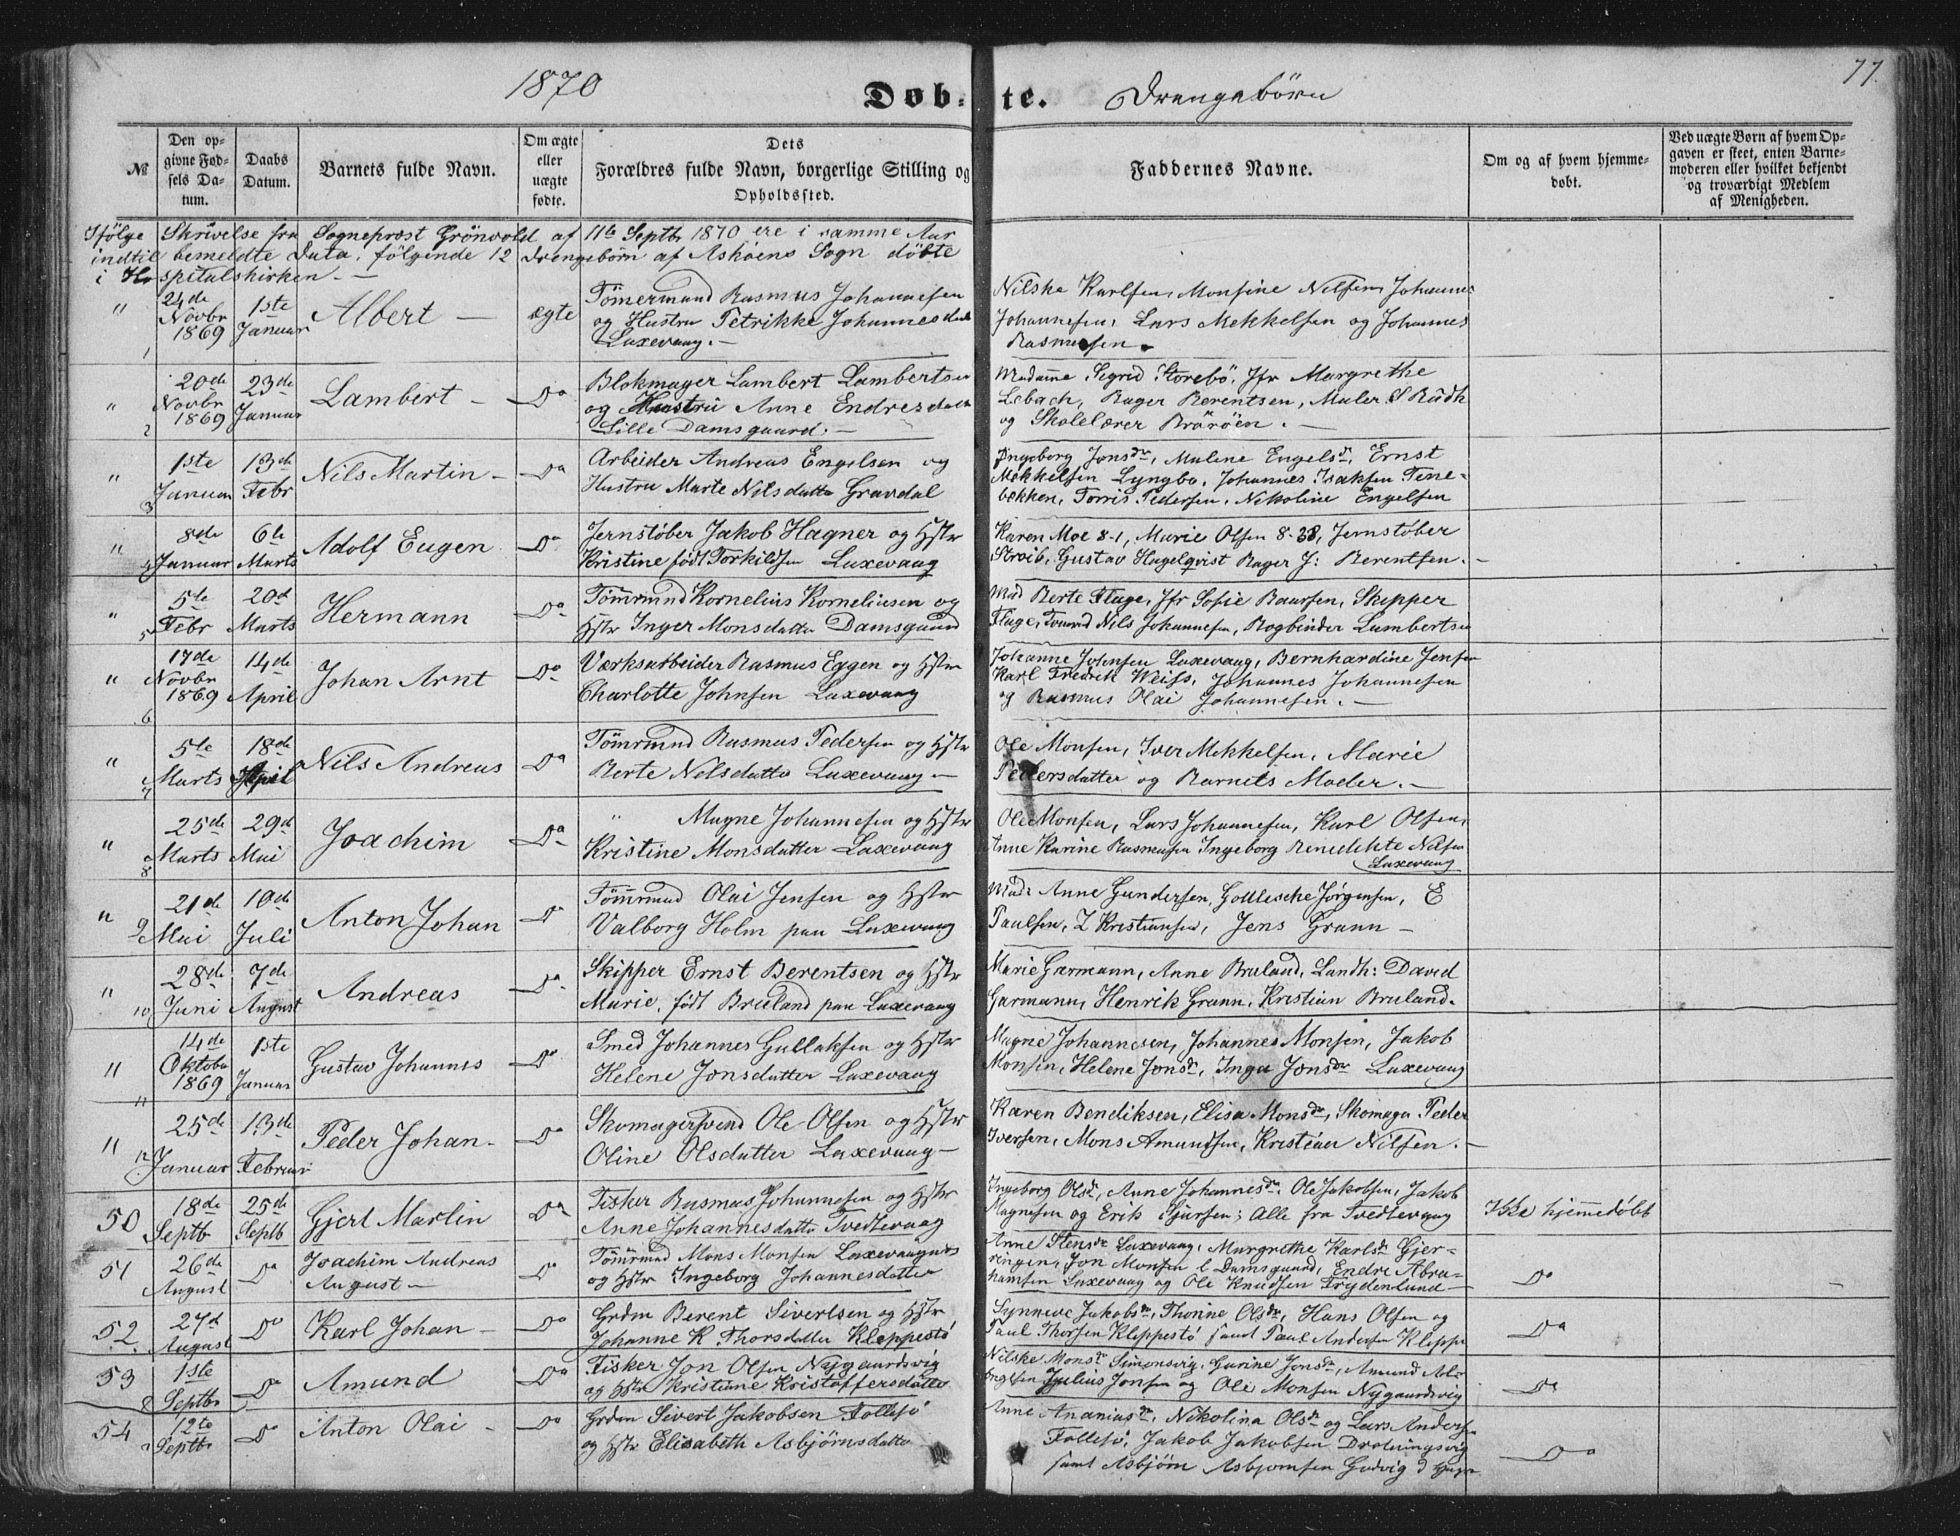 1870 Døbte. Drengebørn 77.
№
Den opgivne Fødsels Datum.
Daabs Datum.
Barnets fulde Navn.
Om ægte eller uægte fødte.
Dets Forældres fulde Navn, borgerlige Stilling og Opholdssted.
Faddernes Navne.
Om og af hvem hjemmedøbt.
Ved uægte Børn af hvem Opgaven er skeet, enten Barnemoderen eller hvilket bekjendt og troværdigt Medlem af Menigheden.
Ifølge Skrivelse fra Sogneprest Grönvold af 11te Septbr 1870 ere i samme Aar
indtil bemeldte Data, følgende 12 Drengebørn af Askøens Sogn døbte
i Hospitalskirken. —
" 1 24de Novbr 1869 1ste Januar Albert — ægte
Tömermand Rasmus Johannesen
og Hustru Petrikke Johannesdatter
Laxevaag. —
Nilske Karlsen, Monsine Nilsen, Johannes
Johannesen, Lars Mekkelsen og Johannes
Rasmusen
" 2 20de Novbr 1869 23de Januar Lambert — Do
Blokmager Lambert Lambertsen
og Hustru Anne Endresdatter
Lille Damsgaard. —
Madame Sigrid Storebö, Jfr Margrethe
Lebach, Bager Berentsen, Maler S Rüdh
og Skolelærer Bröröen. —
" 3 1ste Januar 13de Febr Nils Martin — Do
Arbeider Andreas Engelsen og
Hustru Marte Nilsdatter Gravdal
Ingeborg Jonsdr, Malene Engelsdr, Ernst
Mekkelsen Lyngbø, Johannes Isaksen Tene-
bekken, Torris Pedersen, Nikoline Engelsen
" 4 8de Januar 6te Marts Adolf Eugen Do
Jernstøber Jakob Hagner og Hstr
Kristine født Torkildsen Laxevaag
Karen Moe 8-1, Marie Olsen 8-38, Jernstøber
Stroib, Gustav Hagelqvist Bager J: Berentsen. —
" 5 5te Febr 20de Marts Hermann Do
Tömrmnd Kornelius Korneliusen og
Hstr Inger Monsdatter Damsgaard
Mad Berte Fluge, Jfr Sofie Baarsen, Skipper
Fluge, Tömrmnd Nils Johannesen, Bogbinder Lambertsen
" 6 17de Novbr 1869 14de April Johan Arnt Do
Værksarbeider Rasmus Eggen og Hstr
Charlotte Johnsen Laxevaag
Johanne Johnsen Laxevaag, Bernhardine Jensen
Karl Fredrik Weiss, Johannes Johannesen
og Rasmus Olai Johannesen. —
" 7 5te Marts 18de April Nils Andreas Do
Tömrmnd Rasmus Pedersen og Hstr
Berte Nilsdatter Laxevaag —
Ole Monsen, Iver Mekkelsen, Marie
Pedersdatter og Barnets Moder. —
" 8 25de Marts 29de Mai Joachim Do
" Magne Johannesen og Hstr
Kristine Monsdatter Laxevaag
Ole Monsen, Lars Johannesen, Karl Olsen,
Anne Karine Rasmusen Ingeborg Benedikte Nilsen
Laxevaag
" 9 21de Mai 10de Juli Anton Johan Do
Tömrmnd Olai Jensen og Hstr
Valborg Holm paa Laxevaag
Mad: Anne Gundersen, Gottlische Jørgensen, E
Paulsen, Z Kristiansen, Jens Grann —
" 10 28de Juni 7de August Andreas Do
Skipper Ernst Berentsen og Hstr
Marie, født Bruland paa Laxevaag
Marie Garmann, Anne Bruland, Landh: David
Garmann, Henrik Grann, Kristian Bruland.
" 11 14de Oktobr 1869 1ste Januar Gustav Johannes Do
Smed Johannes Gullaksen og Hstr
Helene Jonsdatter Laxevaag
Magne Johannesen, Johannes Monsen, Jakob
Monsen, Helene Jonsdr, Inga Jonsdr Laxevaag
" 12 25de Januar 13de Februar Peder Johan Do
Skomagersvend Ole Olsen og Hstr
Oline Olsdatter Laxevaag —
Karen Bendiksen, Elisa Monsdr, Skomager Peder
Iversen, Mons Amundsen, Kristian Nilsen. —
50 18de Septb 25de Septb Gjert Martin Do
Fisker Rasmus Johannesen og Hstr
Anne Johannesdatter Tvedtevaag
Ingeborg Olsdr, Anne Johannesdr, Ole Jakobsen, Jakob
Magnesen og Erik Sjursen; Alle fra Tvedtevaag
Ikke hjemmedöbt
51 26de August Do Joachim Andreas August — Do
Tömrmnd Mons Monsen Laxevaagnes
og Hstr Ingeborg Johannesdatter
Anne Stensdr Laxevaag, Margrethe Karlsdr Gjer-
ringen, Jon Monsen L Damsgaard, Endre Abra-
hamsen Laxevaag og Ole Knudsen Frydenlund —
Do
52 27de August Do Karl Johan — Do
Grdm Berent Sivertsen og Hstr
Johanne K Thorsdatter Kleppestö
Synneve Jakobsdr, Thorine Olsdr, Hans Olsen og
Paul Thorsen Kleppestö samt Paul Andersen Kleppe
Do
53 1ste Septbr Do Amund Do
Fisker Jon Olsen Nygaardsvig
og Hstr Kristiane Kristoffersdatter
Nilske Monsdr Simonsvig, Gurine Jonsdr, Amund
Julius Jonsen og Ole Monsen Nygaardsvig
Do
54 12te Septbr Do Anton Olai — Do
Grdm Sivert Jakobsen Follesö
og Hstr Elisabeth Asbjørnsdatter
Anne Ananiasdr, Nikolina Olsdr og Lars Andersen
Follesö, Jakob Jakobsen Drotningsvig
samt Asbjørn Asbjornsen Godvig
Do